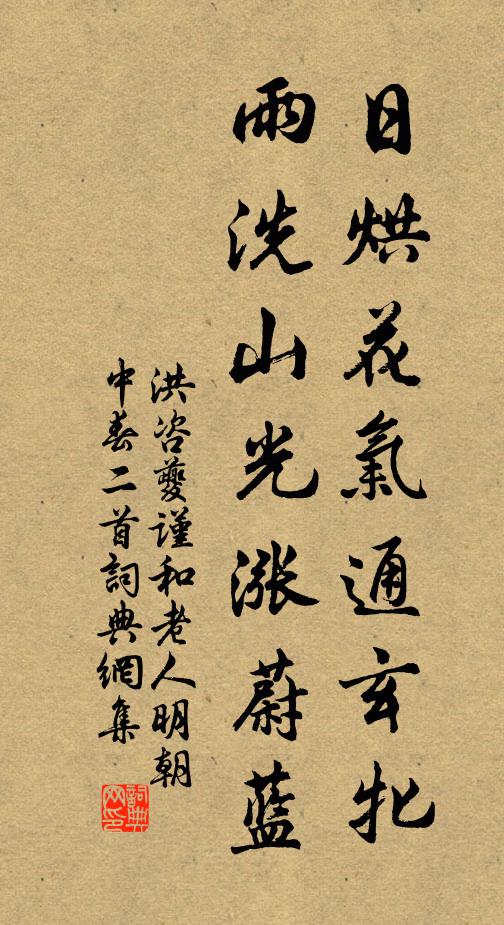 日烘花氣通玄牝
雨洗山光漲蔚藍
洪咨夔謹和老人明朝
中春二首詞典網集
詞典
网印